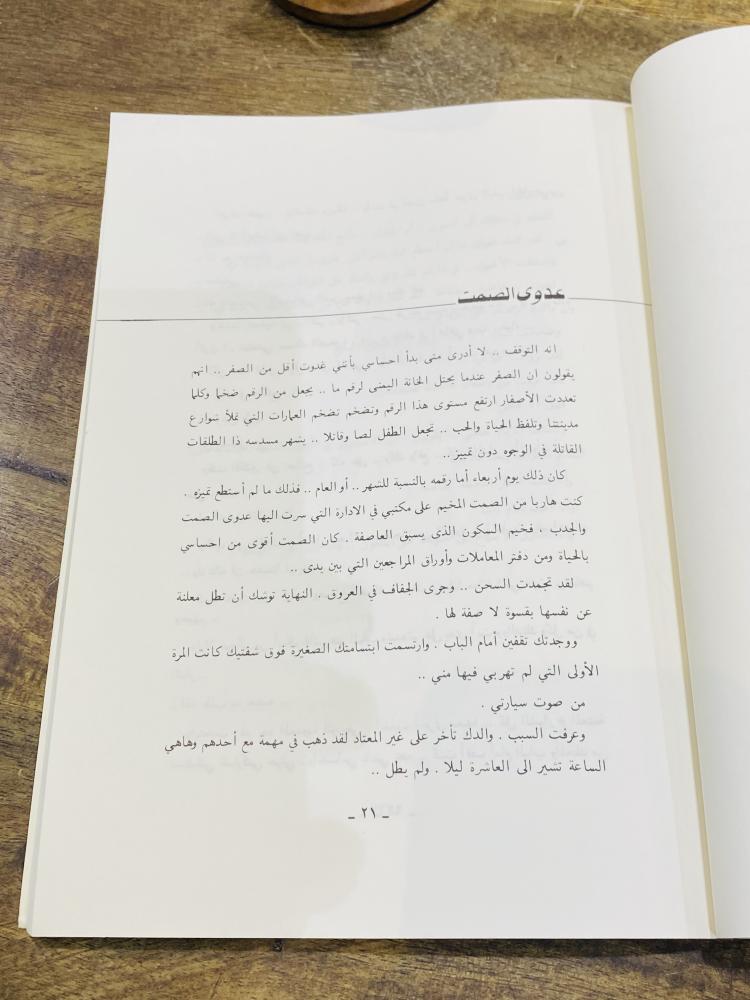 عدوى الصمت
انه التوقف .. لا أدرى متى بدأ احساسي بأنني غدوت أقل من الصفر .. انهم
يقولون ان الصفر عندما يحتل الخانة اليمنى لرقم ما .. يجعل من الرقم ضخما وكلما
تعددت الأصفار ارتفع مستوى هذا الرقم وتضخم تضخم العمارات التي تملأ شوارع
مدينتنا وتلفظ الحياة والحب .. تجعل الطفل لصا وقاتلا .. يشهر مسدسه ذا الطلقات
القاتلة في الوجوه دون تمييز ..
كان ذلك يوم أربعاء أما رقمه بالنسبة للشهر .. أو العام .. فذلك ما لم أستطع تميزه .
كنت هاربا من الصمت المخيم على مكتبي في الادارة التي سرت اليها عدوى الصمت
والجدب ، فخيم السكون الذى يسبق العاصفة . كان الصمت أقوى من احساسي
بالحياة ومن دفتر المعاملات وأوراق المراجعين التي بين يدى ..
لقد تجمدت السحن .. وجرى الجفاف في العروق . النهاية توشك أن تطل معلنة
عن نفسها بقسوة لا صفة لها .
ووجدتك تقفين أمام الباب . وارتسمت ابتسامتك الصغيرة فوق شفتيك كانت المرة
الأولى التي لم تهربي فيها مني ..
من صوت سيارتي .
وعرفت السبب . والدك تأخر على غير المعتاد لقد ذهب في مهمة مع أحدهم وهاهي
الساعة تشير الى العاشرة ليلا . ولم يطل ..
ـ ٢١ ـ